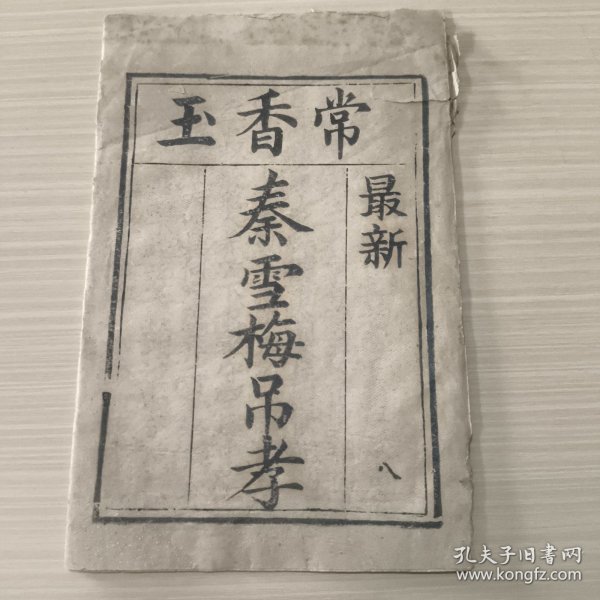 常香玉
最新
八
秦雪梅吊孝
孔夫子旧书网
www.kongfz.com